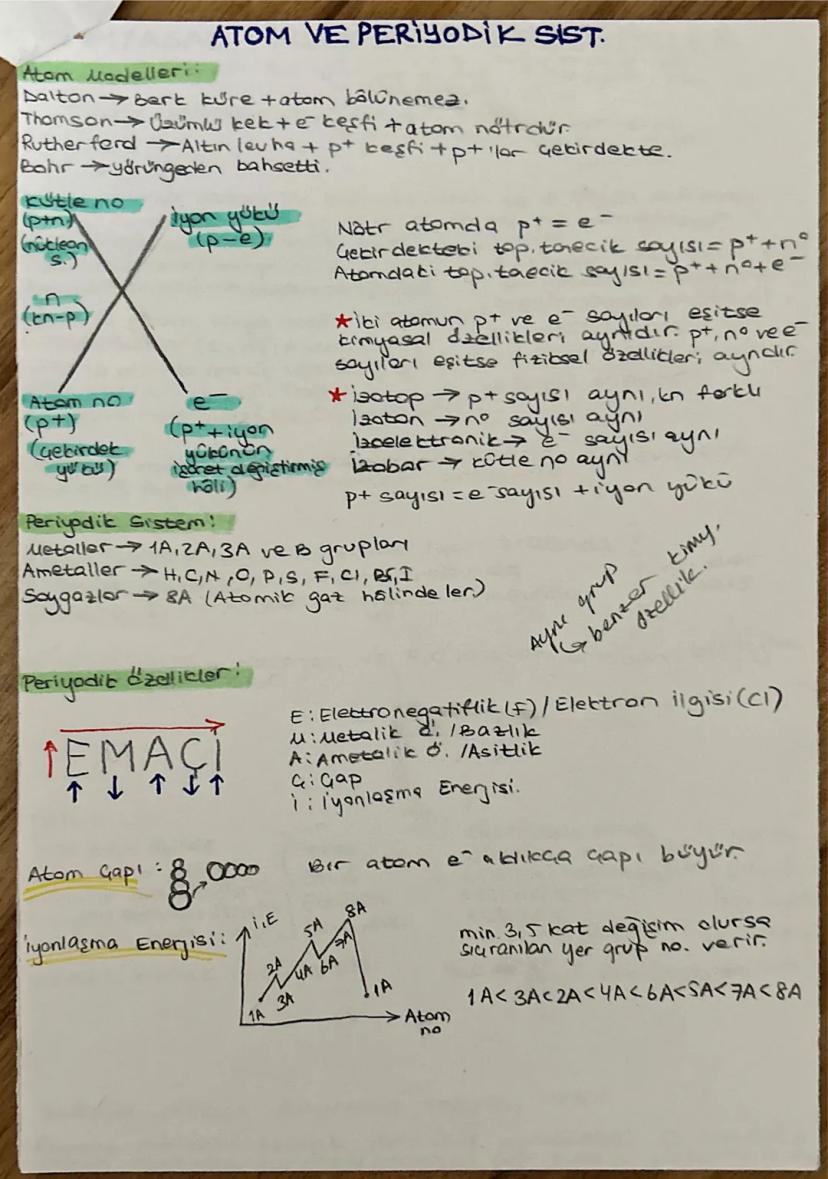 ATOM VE PERİYODİK SİST.
Atom Modelleri:
Dalton → Sert küre + atom bölünemez.
Thomson → Üzümlü kek + e⁻ keşfi + atom nötrdür
Rutherford → Altın levha + p⁺ keşfi + p⁺'lar çekirdekte.
Bohr → yörüngeden bahsetti.
kütle no
(p+n)
(nükleon
s.)
iyon yükü
(p-e)
n
(kn-p)
Atom no
(p+)
(çekirdek
yükü)
e⁻
(p⁺+iyon
yükünün
işaret değiştirmiş
hâli)
Nötr atomda p⁺ = e⁻
Çekirdekteki top. tanecik sayısı = p⁺+n°
Atomdaki top. tanecik sayısı = p⁺+n°+e⁻
★İki atomun p⁺ ve e⁻ sayıları eşitse
kimyasal özellikleri aynıdır. p⁺, n° ve e⁻
sayıları eşitse fiziksel özellikleri aynıdır.
★izotop → p+ sayısı aynı, kn farklı
İzoton → n° sayısı aynı
İzoelektronik → e⁻ sayısı aynı
İzobar → kütle no aynı
p+ sayısı = e⁻ sayısı + iyon yükü
Periyodik Sistem:
Metaller → 1A, 2A, 3A ve B grupları
Ametaller → H, C, N, O, P, S, F, Cl, Br, I
Soygazlar → 8A (Atomik gaz hâlindeler.)
Aynı grup
↳ benzer kimy.
özellik.
Periyodik özellikler:
↑EMAÇİ
↑ ↓ ↑ ↓ ↑
E: Elektronegatiflik (F) / Elektron ilgisi (Cl)
M: Metalik ö. / Bazlık
A: Ametalik Ö. / Asitlik
Ç: Çap
İ: İyonlaşma Enerjisi.
Atom Çapı:
Bir atom e⁻ aldıkça çapı büyür.
İyonlaşma Enerjisi:
i.E
1A 2A 3A 4A 5A 6A 7A 8A 1A
→ Atom
no
min. 3,5 kat değişim olursa
sıçranılan yer grup no. verir.
1A < 3A < 2A < 4A < 6A < 5A < 7A < 8A